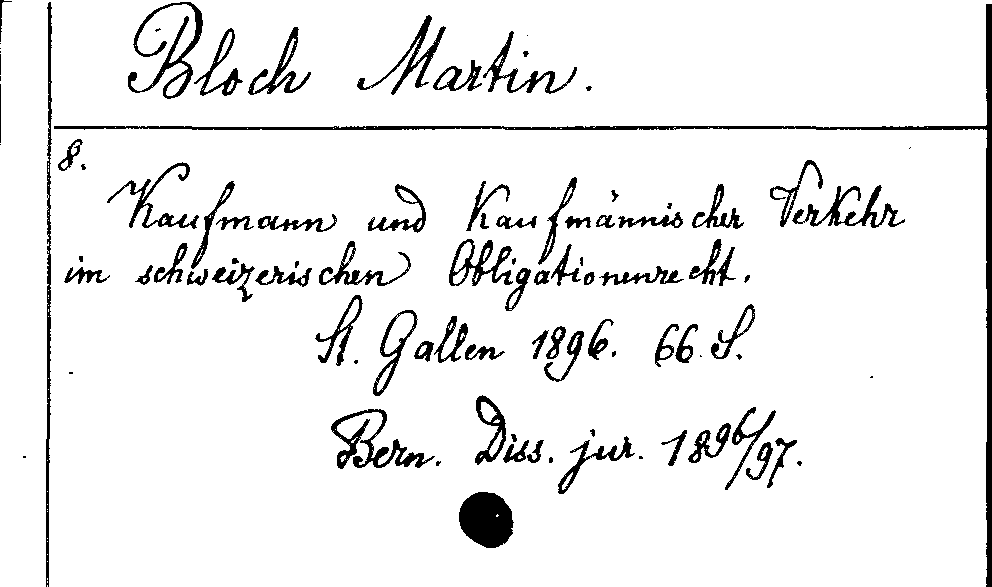 Bloch Martin.
8.
Kaufmann und Kaufmännischer Verkehr
im schweizerischen Obligationenrecht.
St. Gallen 1896. 66 S.
Bern. Diss. jur. 1896/97.